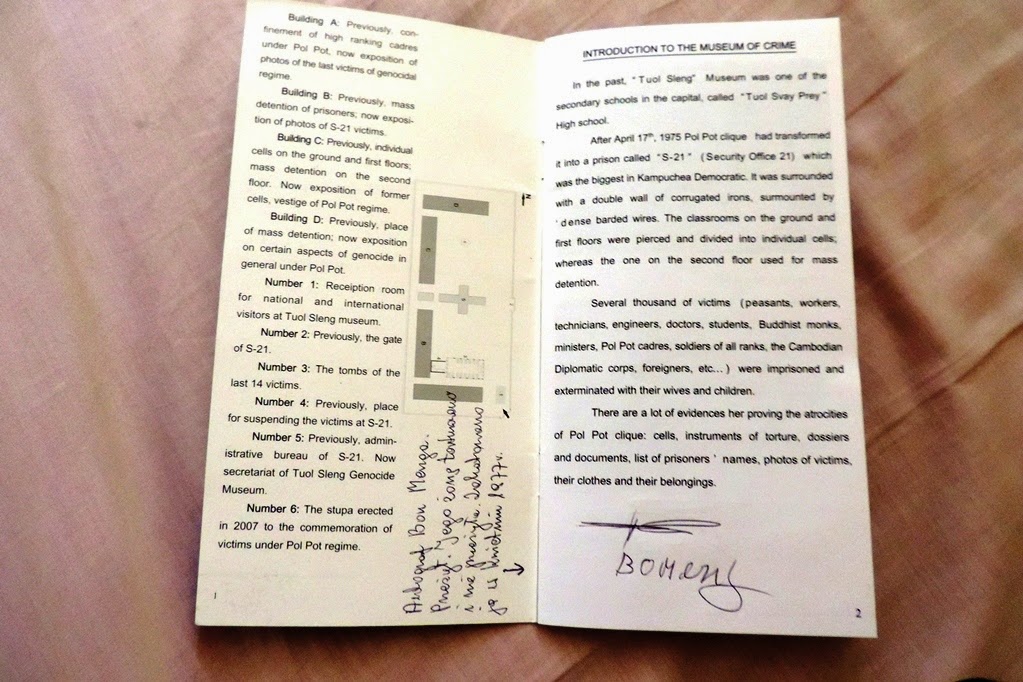 Building A: Previously, con-
finement of high ranking cadres
under Pol Pot, now exposition of
photos of the last victims of genocidal
regime.
Building B: Previously, mass
detention of prisoners; now exposi-
tion of photos of S-21 victims.
Building C: Previously, individual
cells on the ground and first floors;
mass detention on the second
floor. Now exposition of former
cells, vestige of Pol Pot regime.
Building D: Previously, place
of mass detention; now exposition
on certain aspects of genocide in
general under Pol Pot.
Number 1: Receiption room
for national and international
visitors at Tuol Sleng museum.
Number 2: Previously, the gate
of S-21.
Number 3: The tombs of the
last 14 victims.
Number 4: Previously, place
for suspending the victims at S-21.
Number 5: Previously, admin-
istrative bureau of S-21. Now
secretariat of Tuol Sleng Genocide
Museum.
Number 6: The stupa erected
in 2007 to the commemoration of
victims under Pol Pot regime.
1
Autograf Bou Menga.
Przeżył. Jego żonę torturowano
i nie przeżyła. Zakatowano
ją w kwietniu 1977r.
INTRODUCTION TO THE MUSEUM OF CRIME
In the past, "Tuol Sleng" Museum was one of the
secondary schools in the capital, called "Tuol Svay Prey"
High school.
After April 17th, 1975 Pol Pot clique had transformed
it into a prison called "S-21" (Security Office 21) which
was the biggest in Kampuchea Democratic. It was surrounded
with a double wall of corrugated irons, surmounted by
dense barded wires. The classrooms on the ground and
first floors were pierced and divided into individual cells;
whereas the one on the second floor used for mass
detention.
Several thousand of victims (peasants, workers,
technicians, engineers, doctors, students, Buddhist monks,
ministers, Pol Pot cadres, soldiers of all ranks, the Cambodian
Diplomatic corps, foreigners, etc...) were imprisoned and
exterminated with their wives and children.
There are a lot of evidences her proving the atrocities
of Pol Pot clique: cells, instruments of torture, dossiers
and documents, list of prisoners' names, photos of victims,
their clothes and their belongings.
BOMENG
2